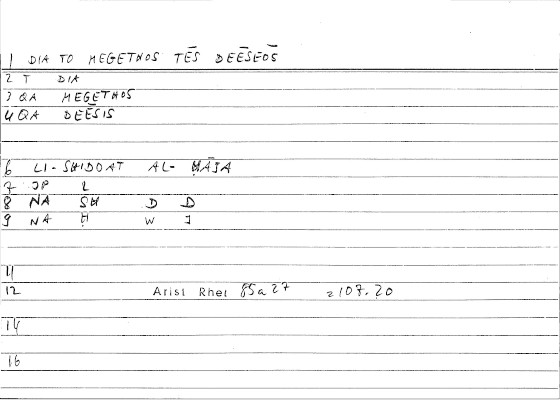 1 DIA TO MEGETHOS TĒS DEĒSEŌS
2 T DIA
3 QA MEGETHOS
4 QA DEĒSIS
6 LI-SHIDDAT AL-ḤĀJA
7 JP L
8 NA SH D D
9 NA Ḥ W J
11
12 Arist Rhet 85a27 =107.20
14
16